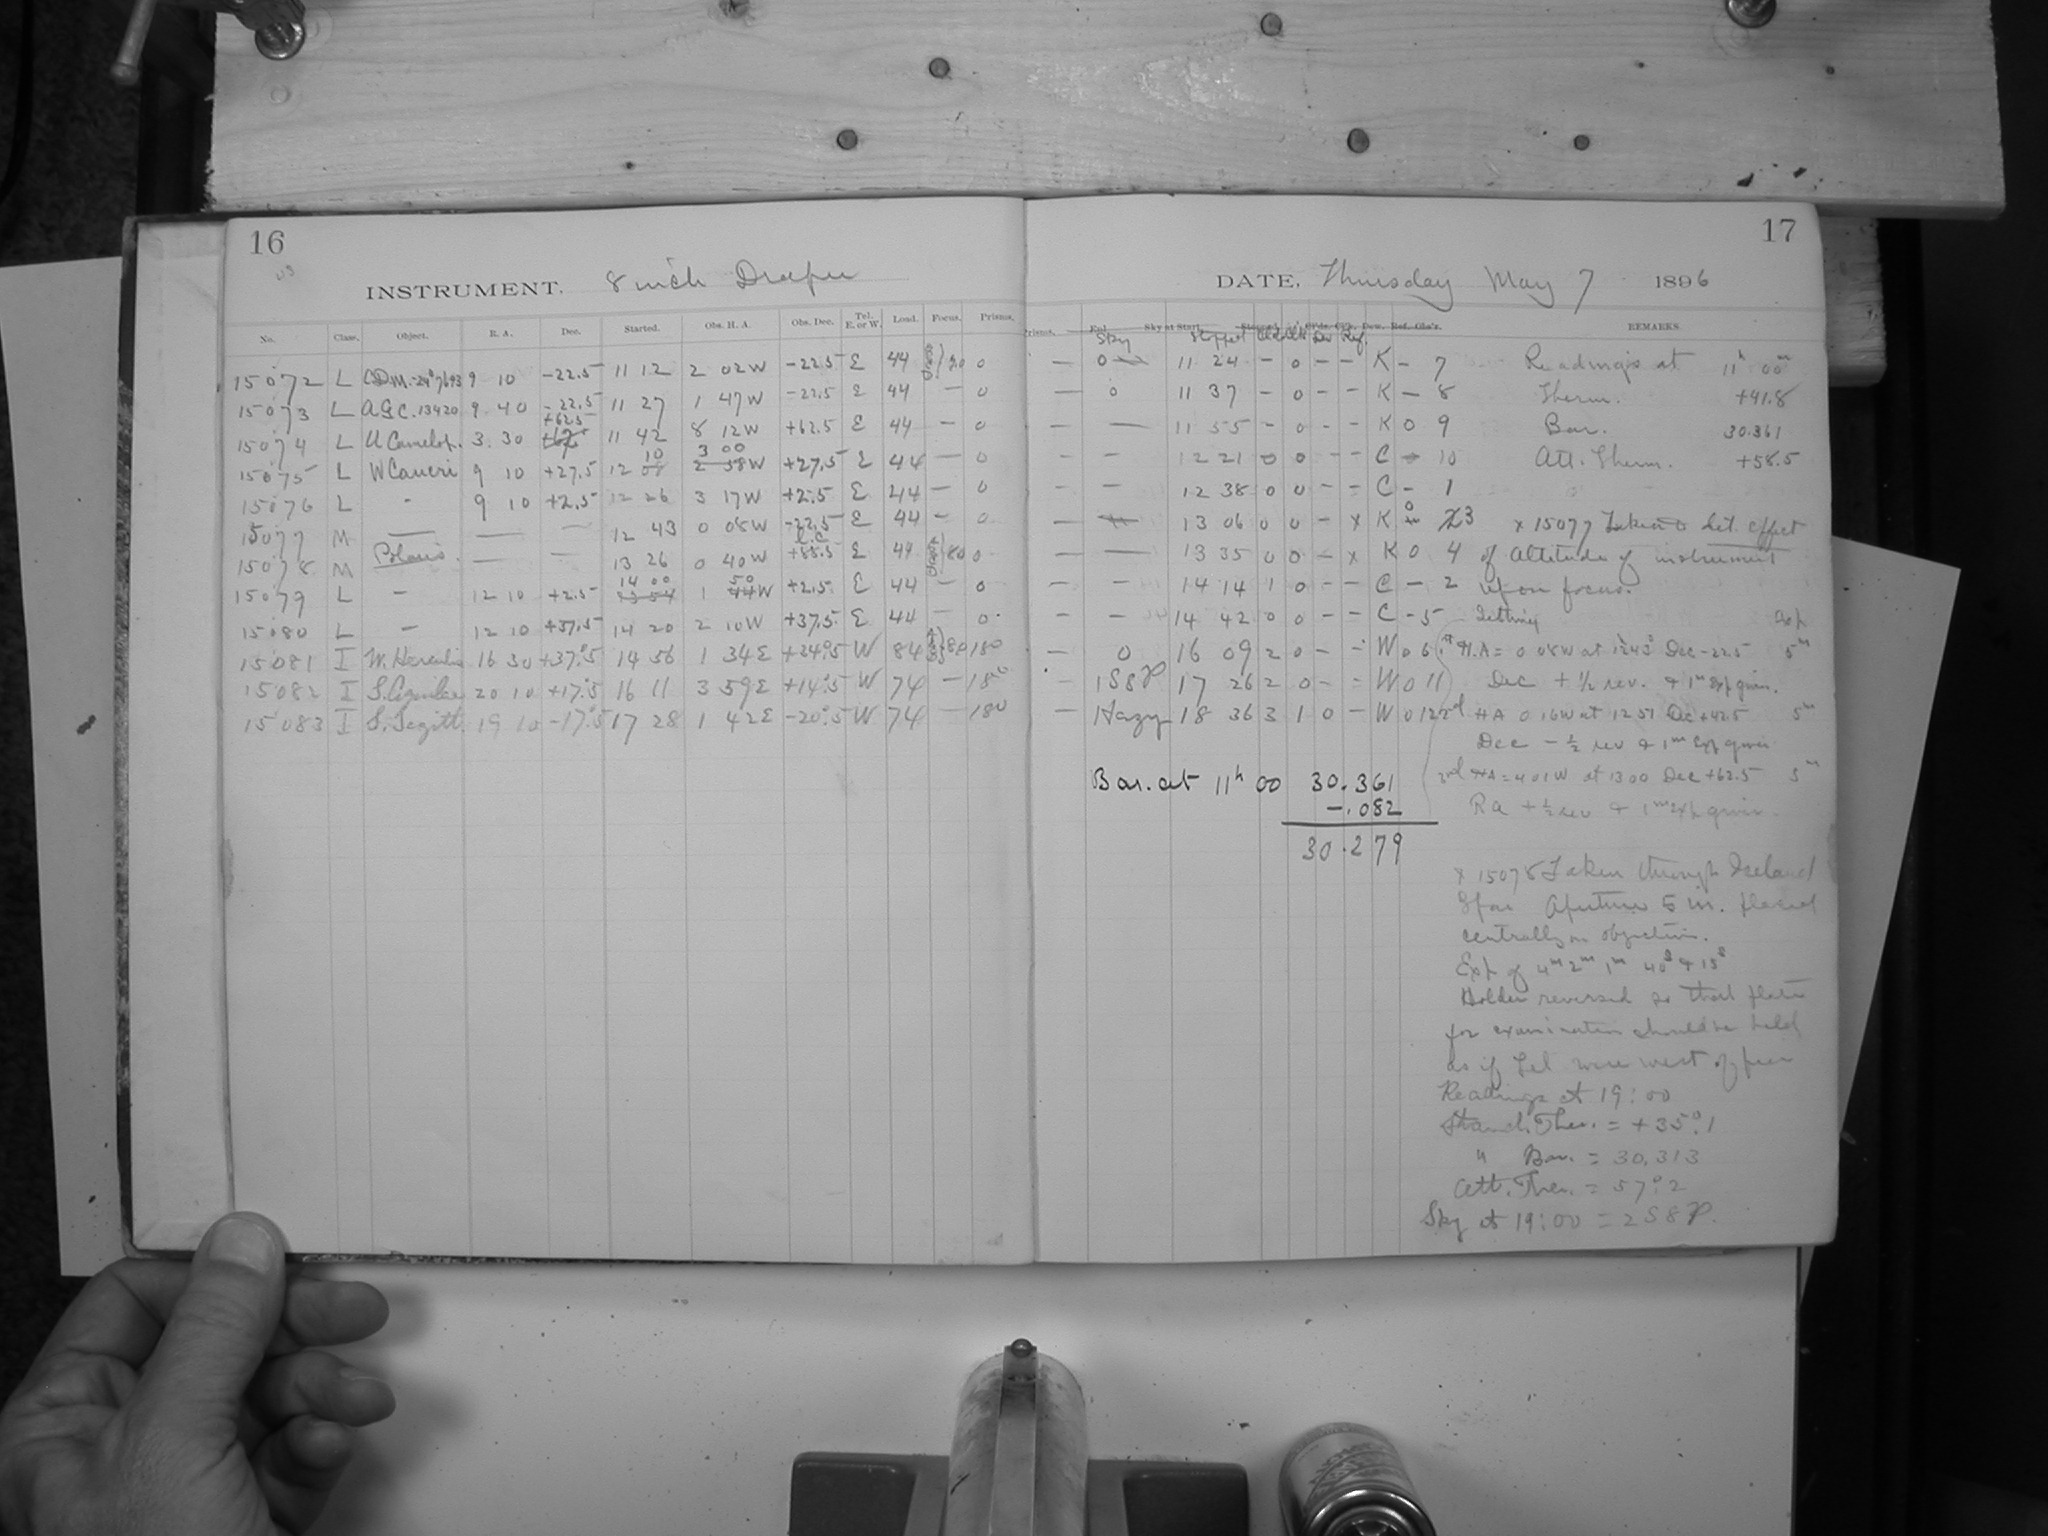 16
INSTRUMENT. 8 inch Draper
No. Class. Object. R. A. Dec. Started. Obs. H. A. Obs. Dec. Tel. E. or W. Load. Focus. Prisms.
15072 L C.D.M.-24°7693 9 10 -22.5 11 12 2 02W -22.5 E 44 80 0
15073 L A.G.C. 13420 9 40 -22.5 11 27 1 47W -22.5 E 44 — 0
15074 L U Camelop. 3. 30 +62.5 11 42 8 12W +62.5 E 44 — 0
15075 L W Cancri 9 10 +27.5 12 10 3 00 W +27.5 E 44 — 0
15076 L - 9 10 +2.5 12 26 3 17W +2.5 E 44 — 0
15077 M — — — 12 43 0 08W -22.5 E 44 - 0
15078 M Polaris — — 13 26 0 40W +88.5 E 44 80 0
15079 L - 12 10 +2.5 14 00 1 50 W +2.5 E 44 - 0
15080 L - 12 10 +37.5 14 20 2 10W +37.5 E 44 - 0
15081 I W. Herculis 16 30 +37°.5 14 56 1 34E +34°.5 W 84 80 180
15082 I S. Aquilae 20 10 +17°.5 16 11 3 59E +14°.5 W 74 — 180
15083 I S. Sagitt. 19 10 -17°.5 17 28 1 42E -20°.5 W 74 — 180
17
DATE, Thursday May 7 1896
Prisms. Sky at Start. Stopped REMARKS.
Sky Stopped Ref.
— 0 11 24 - 0 - - K - 7 Readings at 11h 00m
— 0 11 37 - 0 - - K - 8 Therm. +41.8
— — 11 55 - 0 - - K 0 9 Bar. 30.361
— — 12 21 0 0 - - C 10 Att. Therm. +58.5
— — 12 38 0 0 - - C - 1
— 13 06 0 0 - x K 0 3 x 15077 Taken to det. effect
— — 13 35 0 0 - x K 0 4 of altitude of instrument
— - 14 14 1 0 - - C - 2 upon focus.
— - 14 42 0 0 - - C - 5 Setting Exp
- 0 16 09 2 0 - - W 0 6 1st H.A = 0 08W at 12 43 Dec -22.5 5m
- 1S8P 17 26 2 0 - - W 0 11 Dec + ½ rev. & 1m Exp given.
— Hazy 18 36 3 1 0 - W 0 12 2nd HA 0 16W at 12 51 Dec +42.5 5m
Dec - ½ rev & 1m Exp given
Bar. at 11h 00 30.361 3rd HA = 4 01W at 13 00 Dec +62.5 5m
-.082 Ra + ½ rev & 1m exp given.
30.279
x 15078 Taken through Iceland
Spar Aperture 5 in. placed
centrally on objective.
Exp of 4m 2m 1m 40s & 15s
Holder reversed so that plate
for examination should be held
as if Tel were west of pier
Readings at 19:00
Stand. Ther. = +35°.1
" Bar. = 30.313
Att. Ther. = 57°.2
Sky at 19:00 = 2S8P.